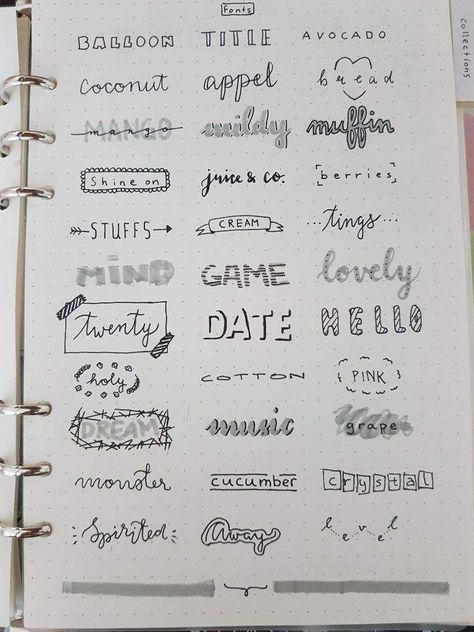 Fonts
BALLOON TITLE AVOCADO
coconut appel bread
MANGO mango mildy muffin
Shine on juice & co. berries
STUFFS CREAM ...tings...
MIND GAME lovely
twenty DATE HELLO
holy COTTON PINK
DREAM music grape
monster cucumber crystal
Spirited Away level
collections